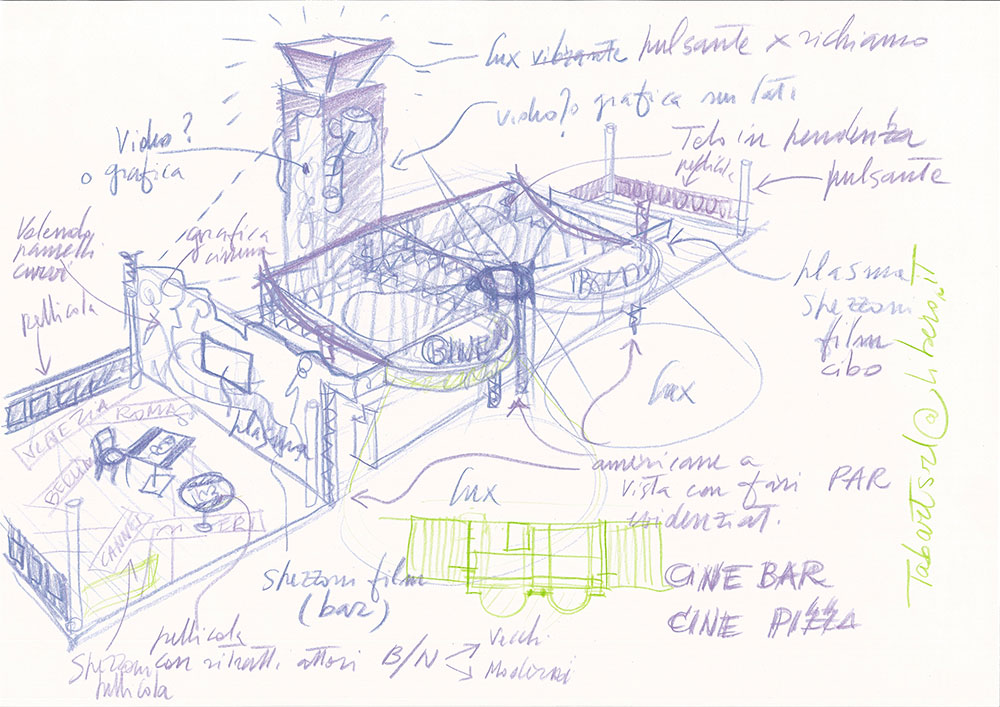 lux vibrante pulsante x richiamo
video? o grafica sui lati
Video?
o grafica
Telo in pendenza
pellicola
pulsante
Volendo
pannelli
curvi
grafica
cinema
pellicola
plasma
spezzoni
film
cibo
CINE
lux
VENEZIA
ROMA
plasma
BERLIN
CANNES
lux
americane a
vista con fari PAR
evidenziati.
spezzoni film
(bar)
CINE BAR
CINE PIZZA
pellicola
spezzoni con ritratti attori B/N
Vecchi
Moderni
pellicola
Tabavetsrl@libero.it